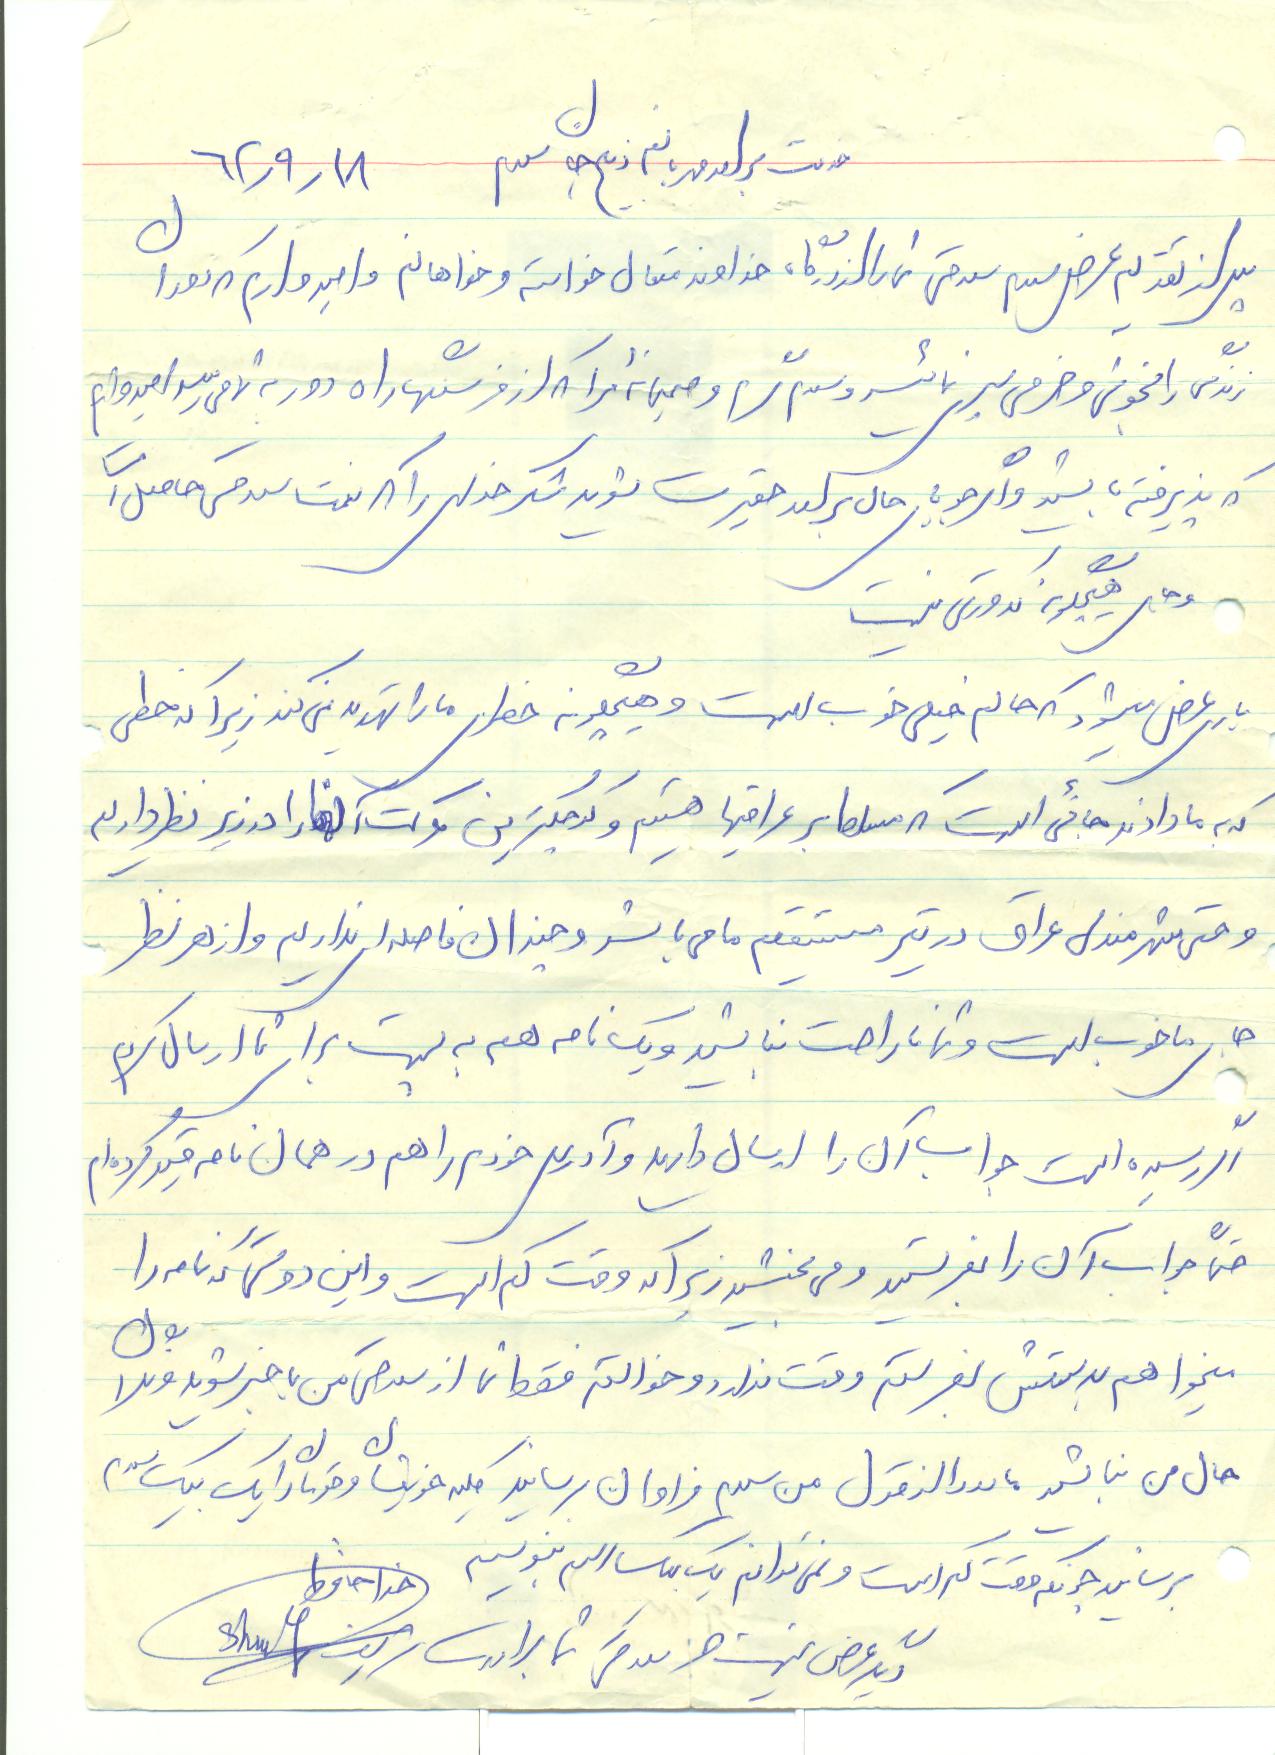 خدمت برادر مهربانم ذبیح جان سلام ۶۲/۹/۱۸
پس از تقدیم عرض سلام سلامتی شما را از درگاه خداوند متعال خواسته و خواهانم و امیدوارم که دوران
زندگی را بخوشی و خرمی سپری نمائید و سلام گرم و صمیمانه مرا که از فرسنگها راه دور به شما می‌رسد امیدوارم
که پذیرفته باشید و اگر جویای حال برادر حقیرت شوید شکر خدای را که نعمت سلامتی حاصل است
و جای هیچگونه کدورتی نیست
باری عرض میشود که حالم خیلی خوب است و هیچگونه خطری ما را تهدید نمی‌کند زیرا که خطی
که به ما دادند جائی است که مسلط بر عراقیها هستیم و کوچکترین حرکت آنها را در زیر نظر داریم
و حتی شهر مندلی عراق در تیر مستقیم ما می‌باشد و چندان فاصله‌ای نداریم و از هر نظر
جای ما خوب است و شما ناراحت نباشید و یک نامه هم به پست برای شما ارسال کردم
اگر رسیده است جواب آن را ارسال دارید و آدرس خودم را هم در همان نامه قید کرده‌ام
حتماً جواب آن را بفرستید و می بخشید زیرا که وقت کم است و این دوستم که نامه را
میخواهم بدستش بفرستم وقت ندارد و خواستم فقط شما از سلامتی من با خبر شوید و نگران
حال من نباشید مادر را از قول من سلام فراوان برسانید کلیه خویشان و قومان را یک بیک سلام
برسانید چونکه وقت کم است و نمی‌توانم یک بیک اسم بنویسم
دیگر عرضی نیست جز سلامتی شما برادرت
خدا حافظ